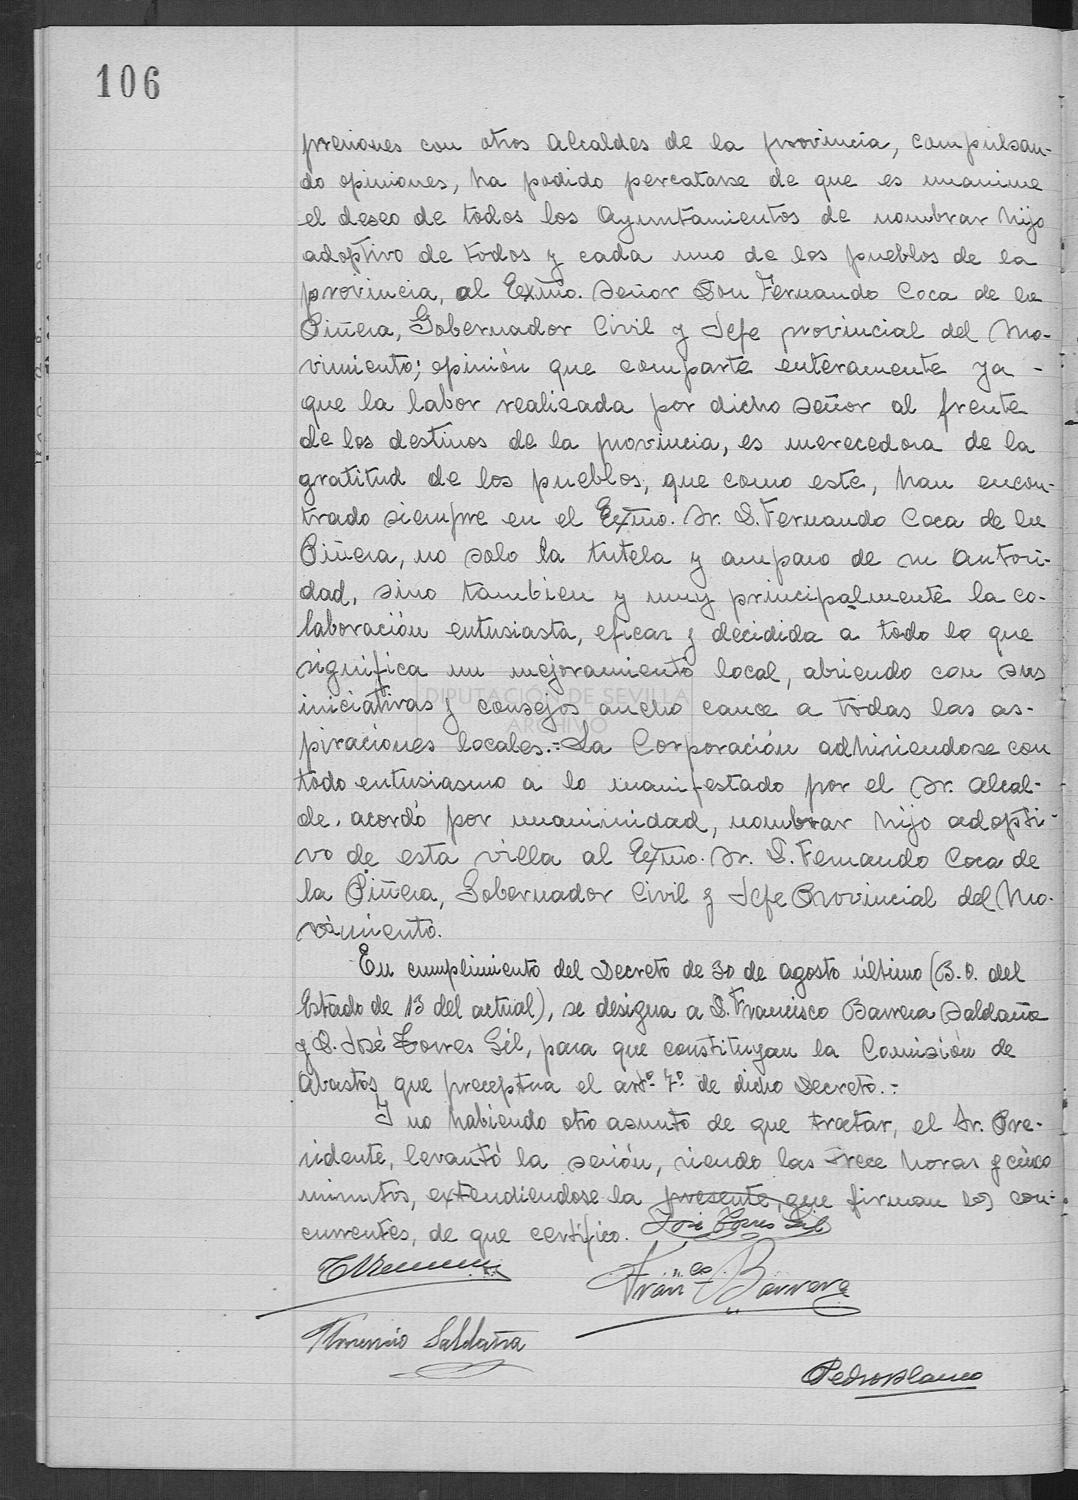 106
presiones con otros Alcaldes de la provincia, compulsan-
do opiniones, ha podido percatarse de que es unanime
el deseo de todos los Ayuntamientos de nombrar hijo
adoptivo de todos y cada uno de los pueblos de la
provincia, al Exmo. Señor Don Fernando Coca de la
Piñera, Gobernador Civil y Jefe provincial del Mo-
vimiento; opinión que comparte enteramente ya -
que la labor realizada por dicho señor al frente
de los destinos de la provincia, es merecedora de la
gratitud de los pueblos, que como este, han encon-
trado siempre en el Exmo. Sr. D. Fernando Coca de la
Piñera, no solo la tutela y amparo de su autori-
dad, sino tambien y muy principalmente la co-
laboración entusiasta, eficaz y decidida a todo lo que
significa un mejoramiento local, abriendo con sus
iniciativas y consejos ancho cauce a todas las as-
piraciones locales.=La Corporación adhiriendose con
todo entusiasmo a lo manifestado por el Sr. Alcal-
de, acordó por unanimidad, nombrar hijo adopti-
vo de esta villa al Exmo. Sr. D. Fernando Coca de
la Piñera, Gobernador Civil y Jefe Provincial del Mo-
vimiento.
En cumplimiento del Decreto de 30 de agosto último (B.O. del
Estado de 13 del actual), se designa a D. Francisco Barrera Saldaña
y D. José Torres Gil, para que constituyan la Comisión de
Abastos que preceptua el artº. 7º. de dicho Decreto.=
Y no habiendo otro asunto de que tratar, el Sr. Pre-
sidente, levantó la sesión, siendo las trece horas y cinco
minutos, extendiendose la presente, que firman los con-
currentes, de que certifico. José Torres Gil
Franco Barrera
Florencio Saldaña
Pedro Blanco
DIPUTACIÓN DE SEVILLA
ARCHIVO